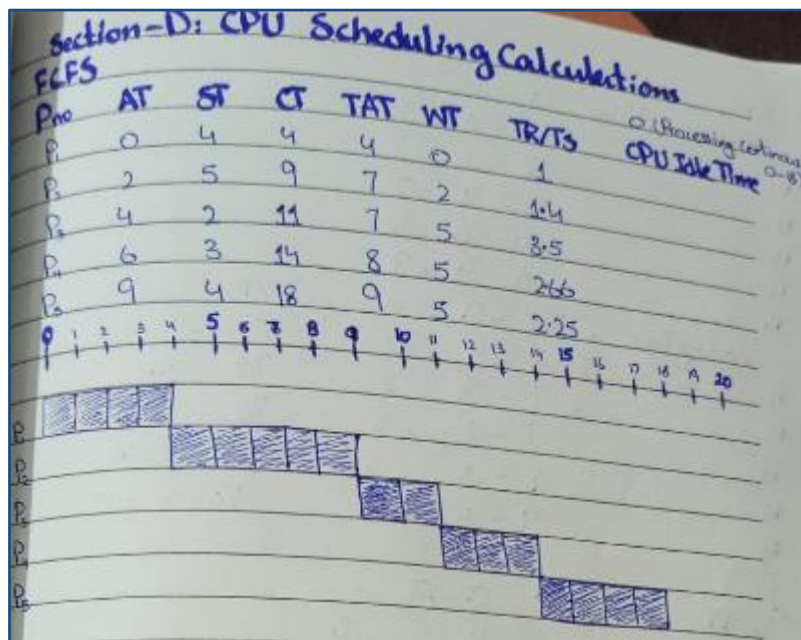 Section-D: CPU Scheduling Calculations
FCFS
Pno AT ST CT TAT WT TR/Ts CPU Idle Time
0 (Processing continuous 0-18)
P1 0 4 4 4 0 1
P2 2 5 9 7 2 1.4
P3 4 2 11 7 5 3.5
P4 6 3 14 8 5 2.66
9 4 18 9 5 2.25
0 1 2 3 4 5 6 7 8 9 10 11 12 13 14 15 16 17 18 19 20
P2
P4
P5